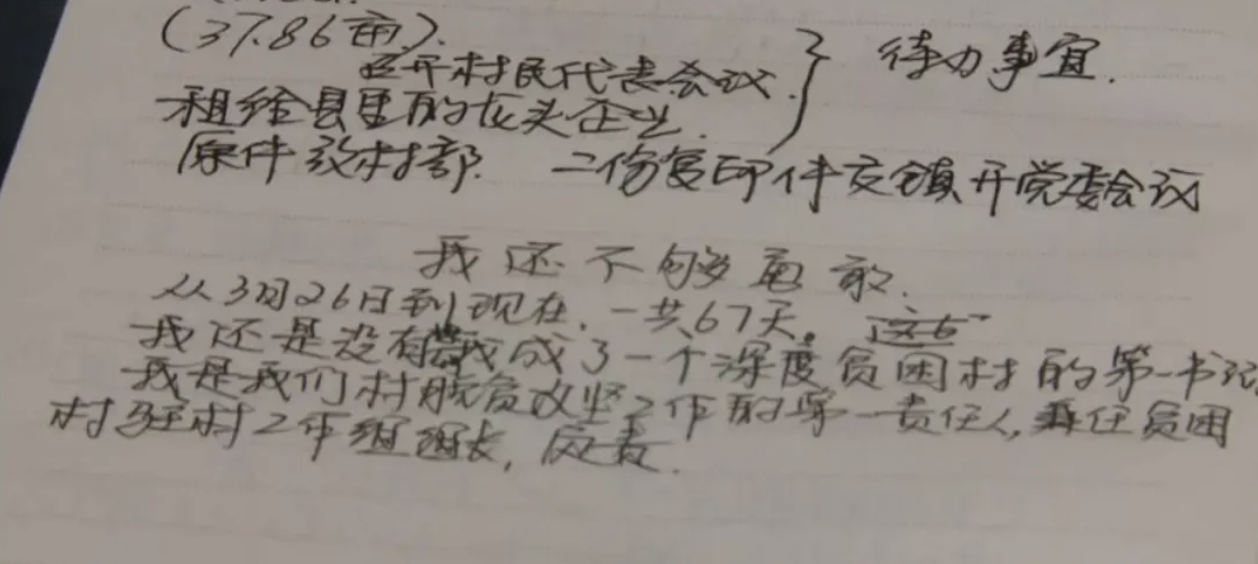 (37.86亩).
召开村民代表会议. 待办事宜.
租给县里的龙头企业.
原件放村部. 二份复印件交镇开党委会议
我还不够勇敢.
从3月26日到现在,一共67天。这6
我还是没有 成了一个深度贫困村的第一书记
我是我们村脱贫攻坚工作的第一责任人,兼任贫困
村驻村工作组组长,负责.